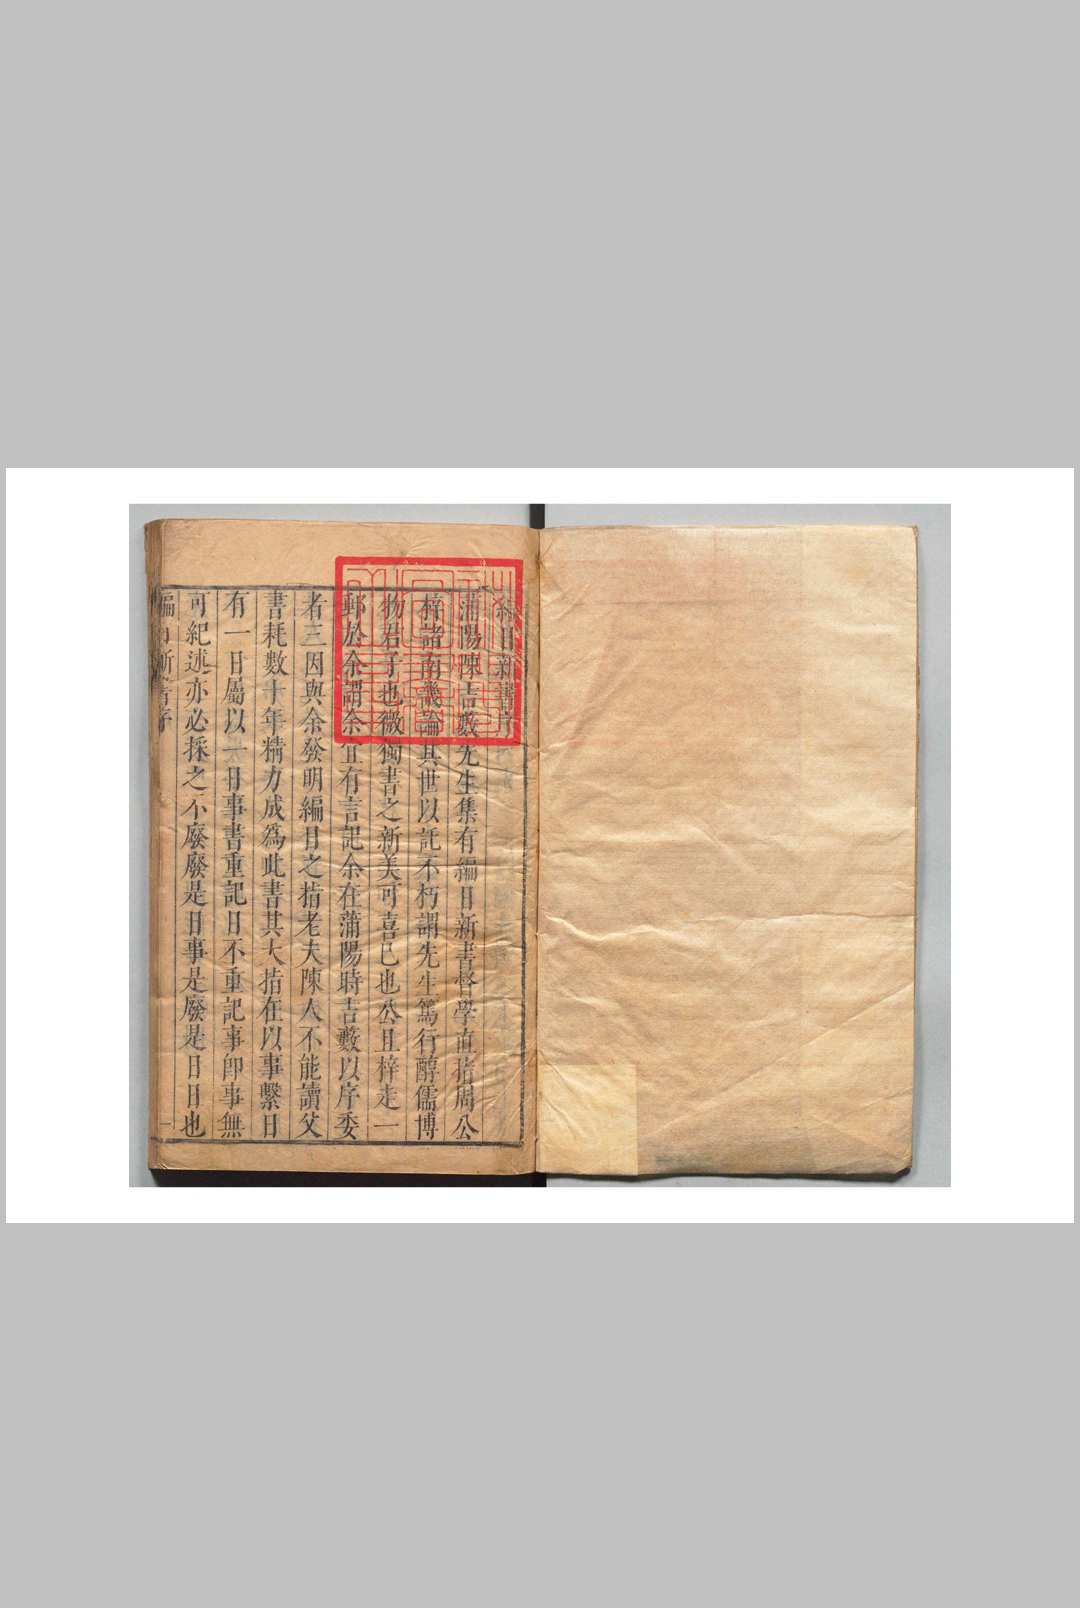 編日新書序
蒲陽陳吉藪先生集有編日新書督學直指周公
梓諸南畿論其世以託不朽謂先生篤行醇儒博
物君子也微獨書之新美可喜已也公且梓走一
郵於余謂余宜有言記余在蒲陽時吉藪以序委
者三因與余發明編日之指老夫陳人不能讀父
書耗數十年精力成爲此書其大指在以事繫日
有一日屬以一日事書重記日不重記事卽事無
可紀述亦必採之不廢廢是日事是廢是日日也
編日新書序
一